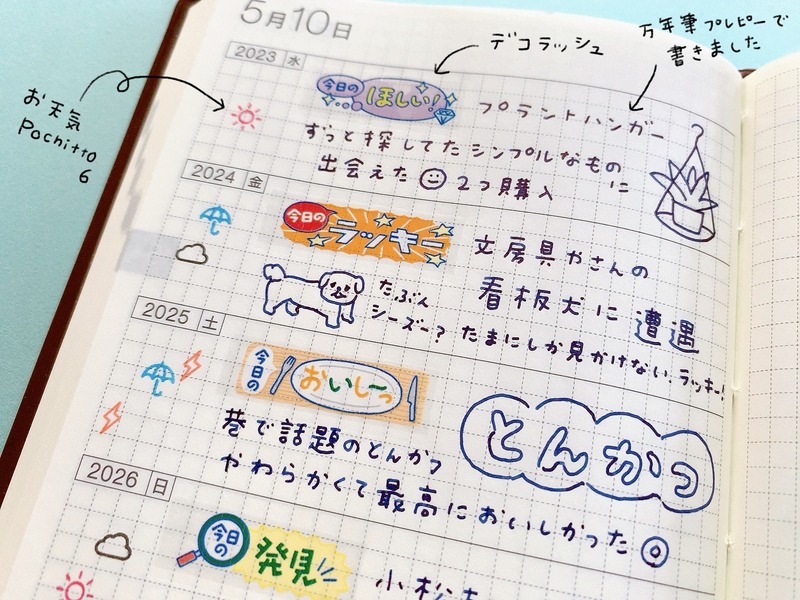 5月10日
デコラッシュ
万年筆プレピーで
書きました
お天気
Pochitto
6
2023 水
今日の
ほしい!
プラントハンガー
ずっと探してたシンプルなものに
出会えた 2つ購入
2024 金
今日の
ラッキー
文房具やさんの
看板犬に遭遇
たぶん
シーズー?
たまにしか見かけない、ラッキー!
2025 土
今日の
おいし〜っ
巷で話題のとんかつ
やわらかくて最高においしかった
とんかつ
2026 日
今日の
発見
小松